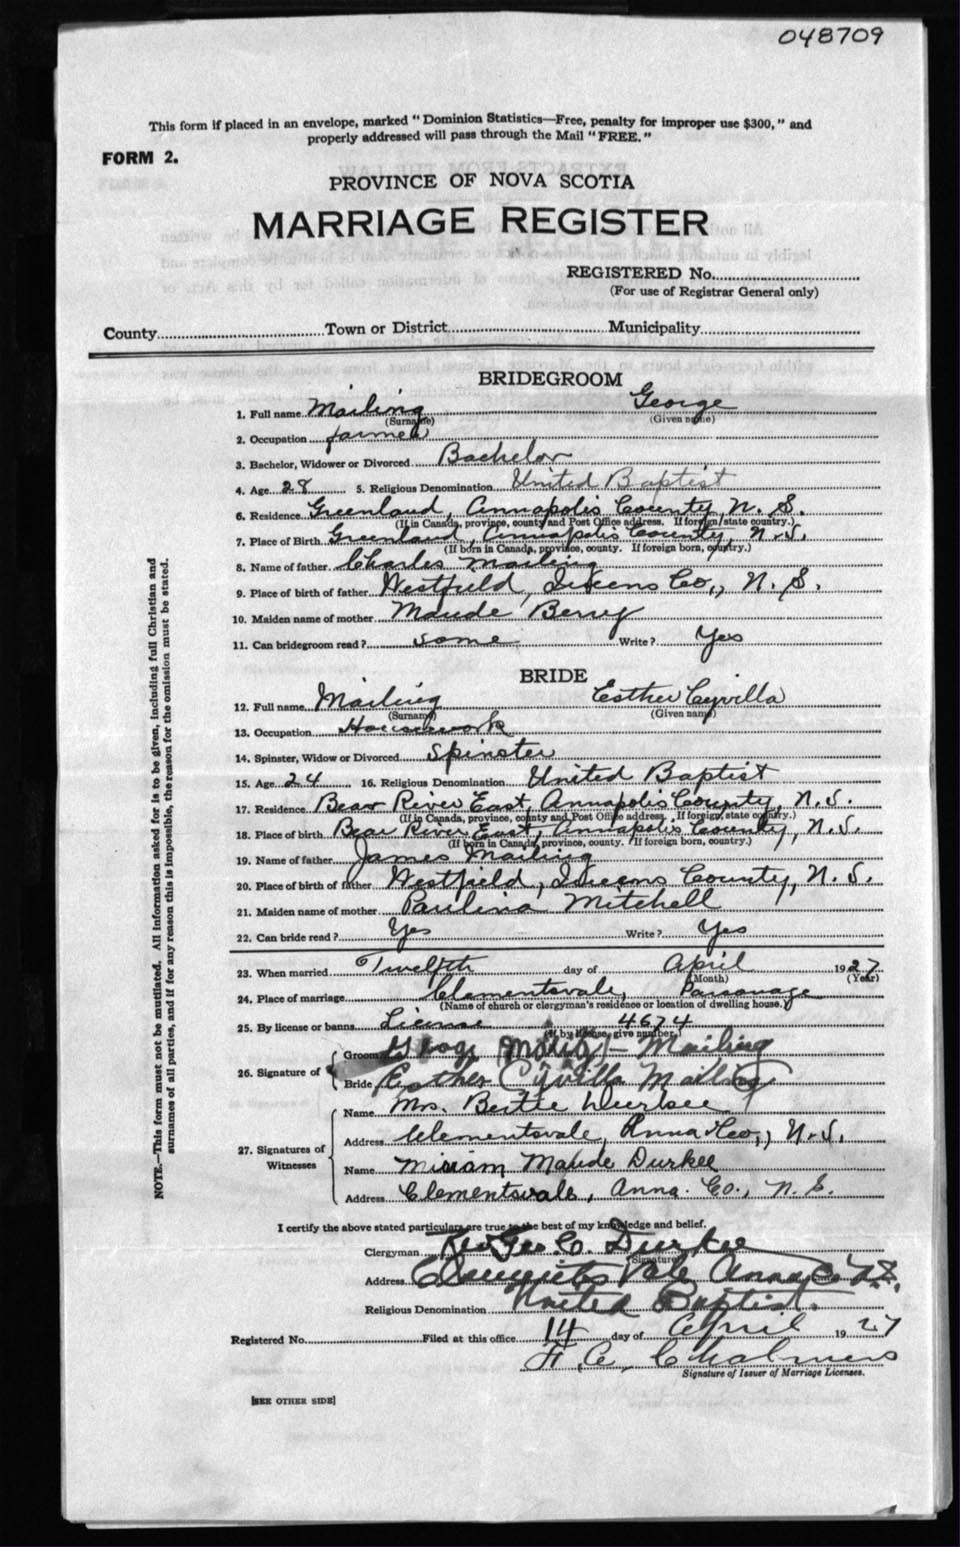 048709
This form if placed in an envelope, marked "Dominion Statistics—Free, penalty for improper use $300," and
properly addressed will pass through the Mail "FREE."
FORM 2.
PROVINCE OF NOVA SCOTIA
MARRIAGE REGISTER
REGISTERED No.
(For use of Registrar General only)
County Town or District Municipality
BRIDEGROOM
1. Full name Mailing George
(Surname) (Given name)
2. Occupation farmer
3. Bachelor, Widower or Divorced Bachelor
4. Age 28 5. Religious Denomination United Baptist
6. Residence Greenland, Annapolis County, N. S.
(If in Canada, province, county and Post Office address. If foreign, state country.)
7. Place of Birth Greenland, Annapolis County, N. S.
(If born in Canada, province, county. If foreign born, country.)
8. Name of father Charles Mailing
9. Place of birth of father Westfield, Queens Co., N. S.
10. Maiden name of mother Maude Berry
11. Can bridegroom read? some Write? Yes
BRIDE
12. Full name Mailing Esther Cyvilla
(Surname) (Given name)
13. Occupation Housework
14. Spinster, Widow or Divorced Spinster
15. Age 24 16. Religious Denomination United Baptist
17. Residence Bear River East, Annapolis County, N. S.
(If in Canada, province, county and Post Office address. If foreign, state country.)
18. Place of birth Bear River East, Annapolis County, N. S.
(If born in Canada, province, county. If foreign born, country.)
19. Name of father James Mailing
20. Place of birth of father Westfield, Queens County, N. S.
21. Maiden name of mother Paulina Mitchell
22. Can bride read? Yes Write? Yes
23. When married Twelfth day of April 1927
(Month) (Year)
24. Place of marriage Clementsvale, Parsonage
(Name of church or clergyman's residence or location of dwelling house.)
25. By license or banns License 4674
(If by license, give number)
26. Signature of Groom Mailing
Bride Esther Cyvilla Mailing
27. Signatures of Witnesses
Name Mrs. Bertie Durkee
Address Clementsvale, Anna Co., N. S.
Name Miriam Maude Durkee
Address Clementsvale, Anna. Co., N. S.
I certify the above stated particulars are true to the best of my knowledge and belief.
Clergyman Rev Geo. C. Durkee
(Signature)
Address Clements Vale Anna Co N.S.
Religious Denomination United Baptist.
Registered No. Filed at this office 14 day of April 1927
Signature of Issuer of Marriage Licenses.
[SEE OTHER SIDE]
NOTE.—This form must not be mutilated. All information asked for is to be given, including full Christian and
surnames of all parties, and if for any reason this is impossible, the reason for the omission must be stated.